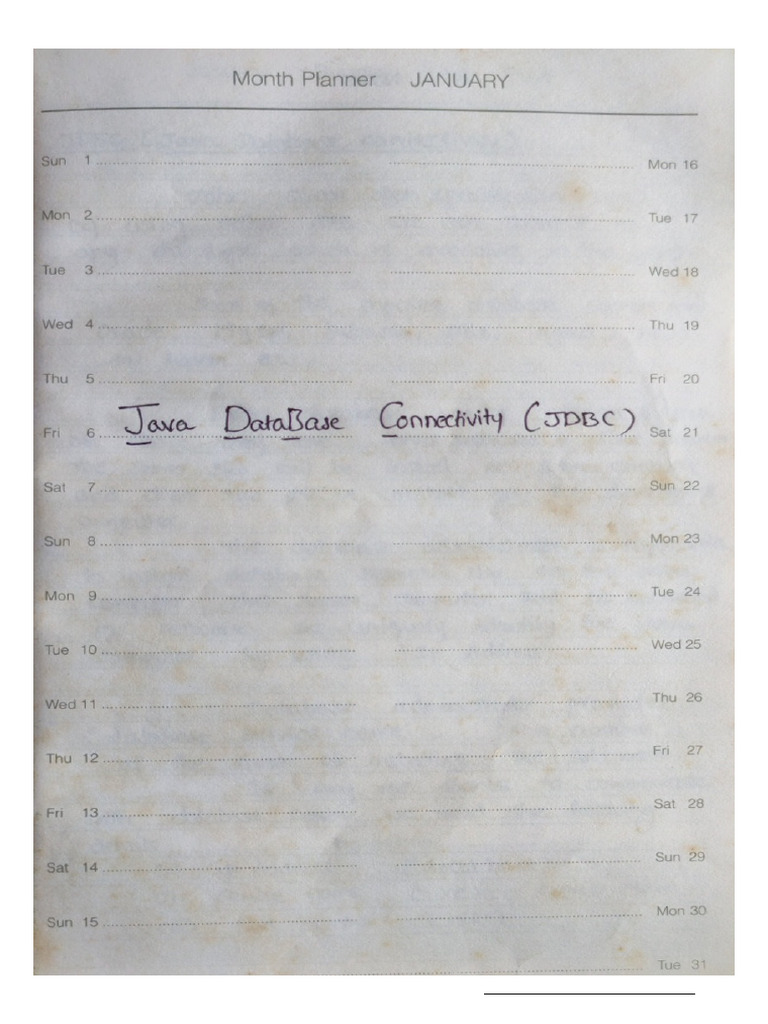 Month Planner JANUARY
Sun 1 Mon 16
Mon 2 Tue 17
Tue 3 Wed 18
Wed 4 Thu 19
Thu 5 Fri 20
Java DataBase Connectivity (JDBC)
Fri 6 Sat 21
Sat 7 Sun 22
Sun 8 Mon 23
Mon 9 Tue 24
Tue 10 Wed 25
Wed 11 Thu 26
Thu 12 Fri 27
Fri 13 Sat 28
Sat 14 Sun 29
Sun 15 Mon 30
Tue 31